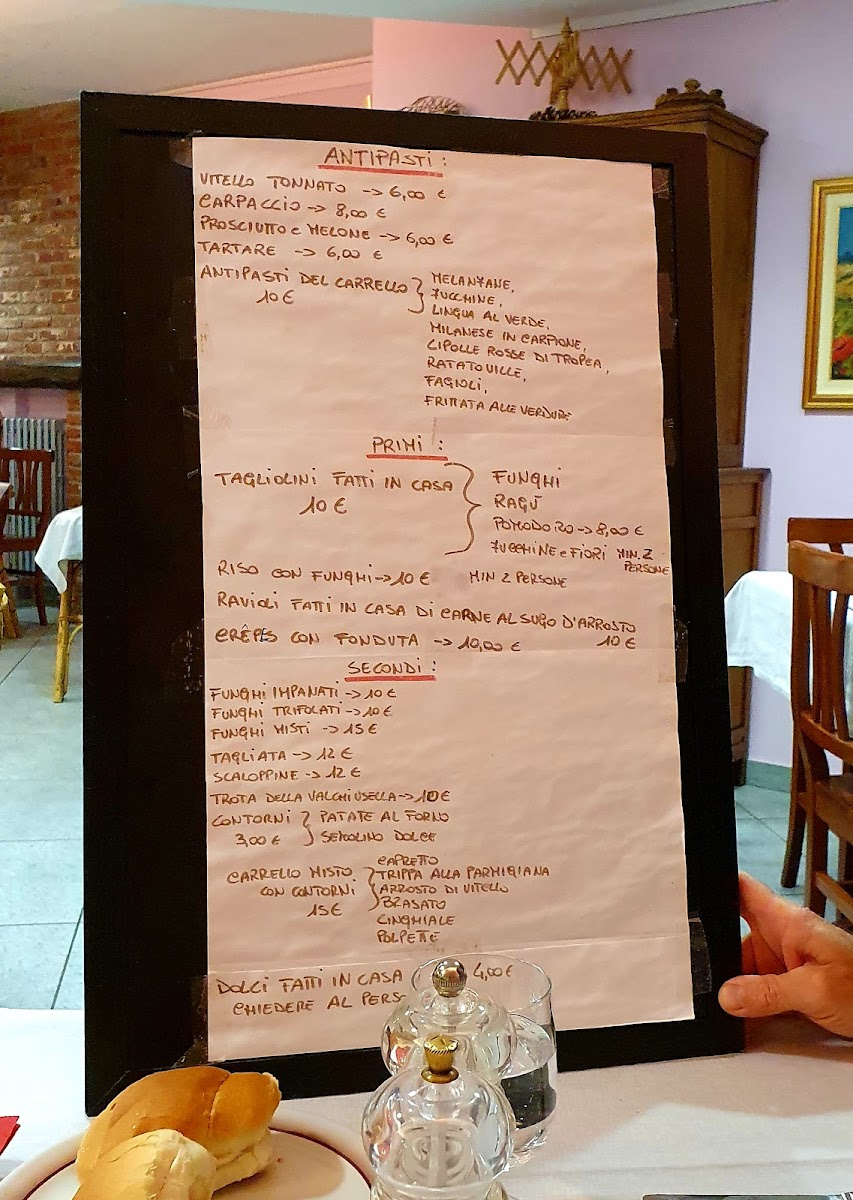 ANTIPASTI:
VITELLO TONNATO -> 6,00 €
CARPACCIO -> 8,00 €
PROSCIUTTO e MELONE -> 6,00 €
TARTARE -> 6,00 €
ANTIPASTI DEL CARRELLO
10 €
MELANZANE,
ZUCCHINE,
LINGUA AL VERDE,
MILANESE IN CARPIONE,
CIPOLLE ROSSE DI TROPEA,
RATATOUILLE,
FAGIOLI,
FRITTATA ALLE VERDURE
PRIMI:
TAGLIOLINI FATTI IN CASA
10 €
FUNGHI
RAGÙ
POMODORO -> 8,00 €
ZUCCHINE e FIORI MIN. 2 PERSONE
RISO CON FUNGHI -> 10 € MIN 2 PERSONE
RAVIOLI FATTI IN CASA DI CARNE AL SUGO D'ARROSTO
10 €
CRÊPES CON FONDUTA -> 10,00 €
SECONDI:
FUNGHI IMPANATI -> 10 €
FUNGHI TRIFOLATI -> 10 €
FUNGHI MISTI -> 15 €
TAGLIATA -> 12 €
SCALOPPINE -> 12 €
TROTA DELLA VALCHIUSELLA -> 10 €
CONTORNI
3,00 €
PATATE AL FORNO
SEMOLINO DOLCE
CARRELLO MISTO
CON CONTORNI
15 €
CAPRETTO
TRIPPA ALLA PARMIGIANA
ARROSTO DI VITELLO
BRASATO
CINGHIALE
POLPETTE
DOLCI FATTI IN CASA 4,00 €
CHIEDERE AL PERS